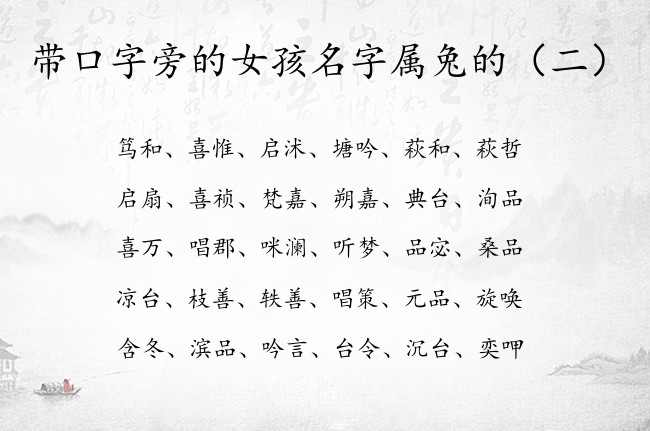 带口字旁的女孩名字属兔的（二）
笃和、喜惟、启沭、塘吟、萩和、萩哲
启扇、喜祯、梵嘉、朔嘉、典台、洵品
喜万、唱郡、咪澜、听梦、品宓、桑品
凉台、枝善、轶善、唱策、元品、旋唤
含冬、滨品、吟言、台令、沉台、奕呷